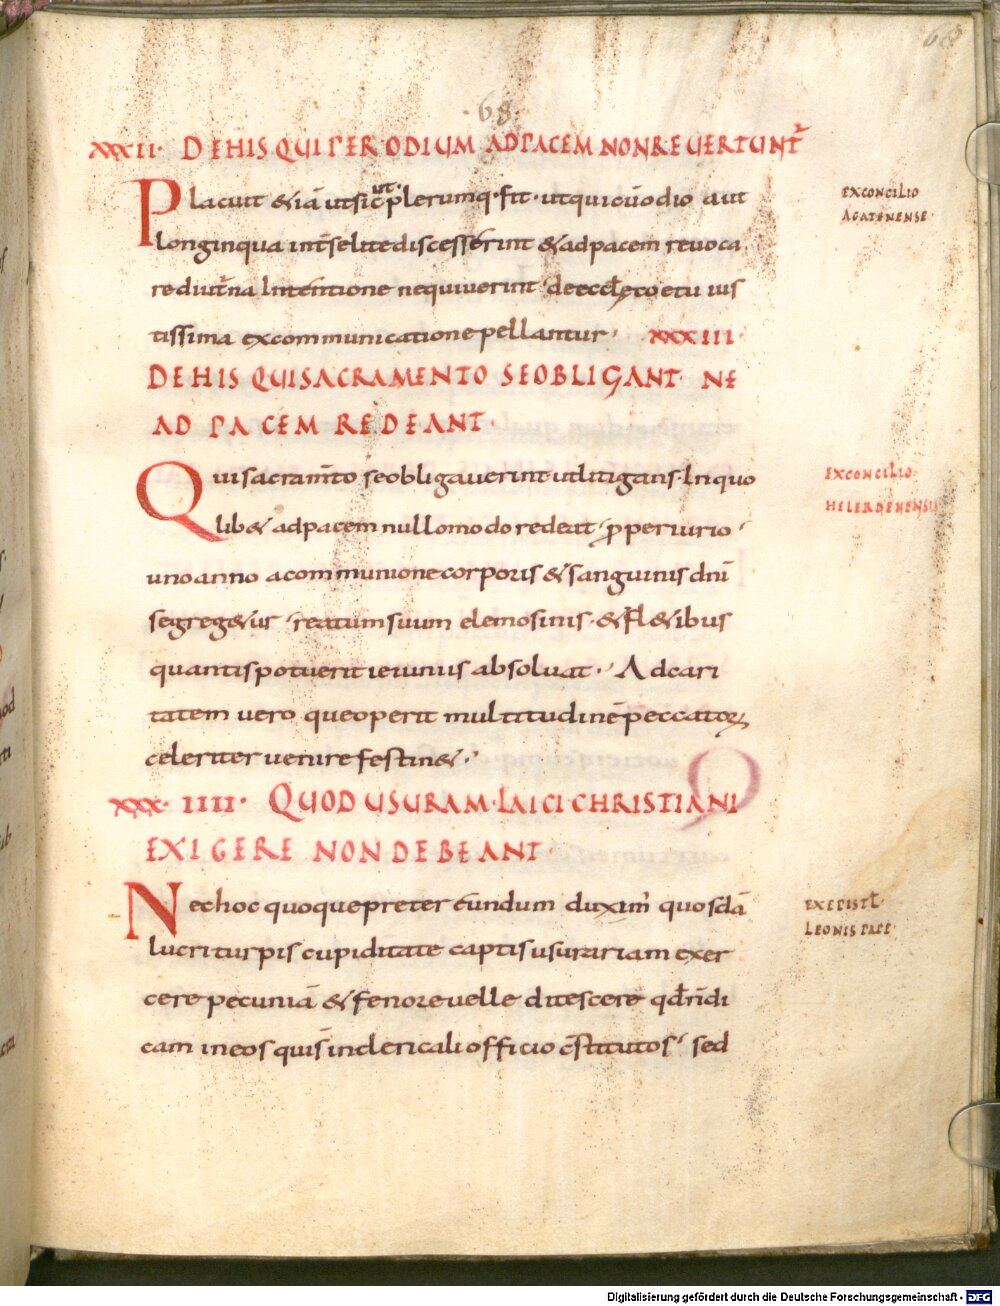 68
·68·
XXXII· DE HIS QUI PER ODIUM AD PACEM NON REUERTUNT̄
Placuit & iā ut sic ut plerumq· fit· ut qui cū odio aut
longinqua int̄ se lite discesserint & ad pacem reuoca
re diut̄na Intentione nequiuerint· de eccl̄ę coetu ius
tissima excommunicatione pellantur· XXXIII·
DE HIS QUI SACRAMENTO SE OBLIGANT· NE
AD PACEM REDEANT·
Qui sacram̄to se obligauerint ut litigans· In quo
lib& ad pacem nullo modo redeat· p̱ periurio·
uno anno a communione corporis & sanguinis dn̄i
segreg&ur· reatum suum elemosinis· & fl&ibus
quantis potuerit ieiuniis absoluat· Ad cari
tatem uero que operit multitudinē peccatoꝝ
celeriter uenire festin&·
XXX· IIII· QUOD USURAM· LAICI CHRISTIANI
EXIGERE NON DEBEANT·
Nec hoc quoque preter eundum duxim̄ quosdā
lucri turpis cupiditate captis usurariam exer
cere pecuniā & fenore uelle ditescere qd̄
cam in eos quis̄ in clericali officio c̄stitutos· sed
EX CONCILIO
AGATENENSE·
EX CONCILIO·
HELERDENENSIS
EX EPISTL̄·
LEONIS PAPE·
Digitalisierung gefördert durch die Deutsche Forschungsgemeinschaft - DFG